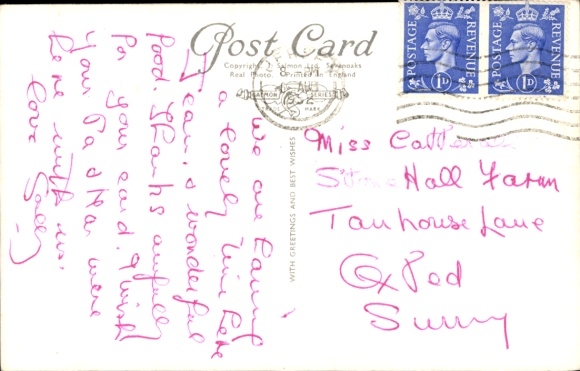 Post Card
Copyright. J. Salmon Ltd. Sevenoaks
Real Photo. Printed in England
SALMON SERIES
TRADE MARK
POSTAGE REVENUE
1D
POSTAGE REVENUE
1D
We are having
a lovely time here
Jean, & wonderful
food. Thanks awfully
for your card. I wish
you Pa & Ma were
here with us.
Love
Sally
WITH GREETINGS AND BEST WISHES
Miss
Stone Hall Farm
Tanhouse Lane
Oxted
Surrey